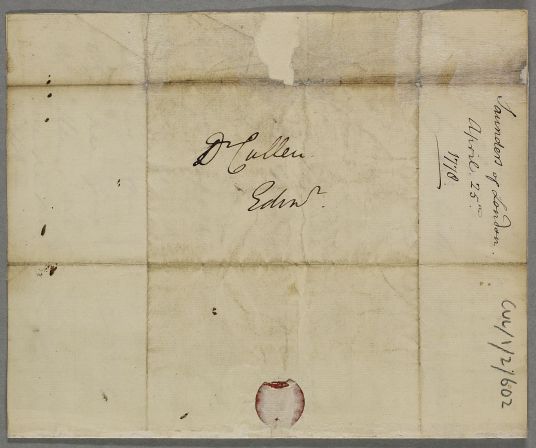 Dr Cullen.
Edinr.
Saunders of London.
April. 25th
1778.
CUL/1/2/602